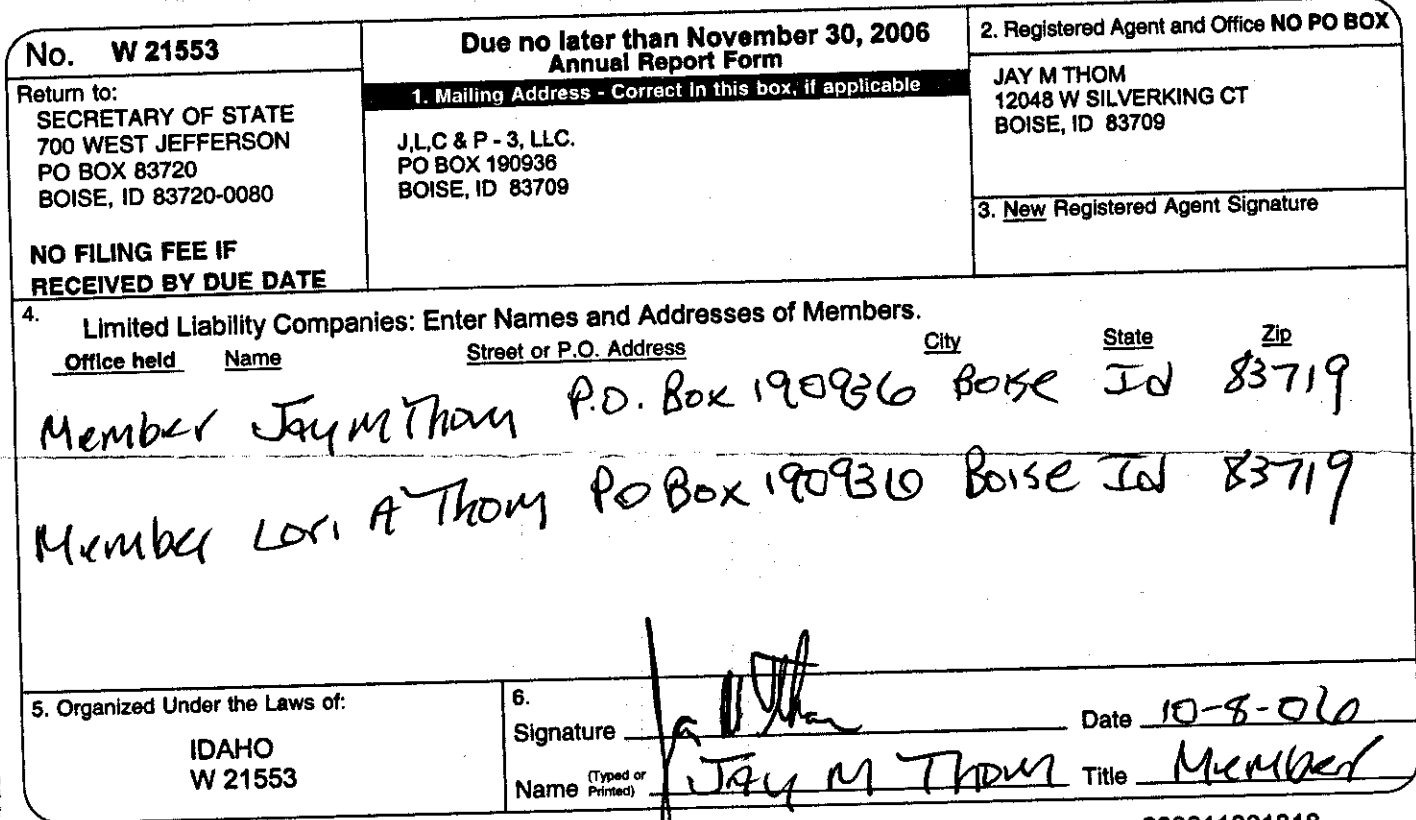 No. W 21553
Return to:
SECRETARY OF STATE
700 WEST JEFFERSON
PO BOX 83720
BOISE, ID 83720-0080
NO FILING FEE IF
RECEIVED BY DUE DATE
Due no later than November 30, 2006
Annual Report Form
1. Mailing Address - Correct in this box, if applicable
J,L,C & P - 3, LLC.
PO BOX 190936
BOISE, ID 83709
2. Registered Agent and Office NO PO BOX
JAY M THOM
12048 W SILVERKING CT
BOISE, ID 83709
3. New Registered Agent Signature
4. Limited Liability Companies: Enter Names and Addresses of Members.
Office held Name Street or P.O. Address City State Zip
Member Jay M Thom P.O. Box 190936 Boise Id 83719
Member Lori A Thom PO Box 190936 Boise Id 83719
5. Organized Under the Laws of:
IDAHO
W 21553
6.
Signature Jay M Thom Date 10-8-06
Name (Typed or Printed) JAY M Thom Title Member